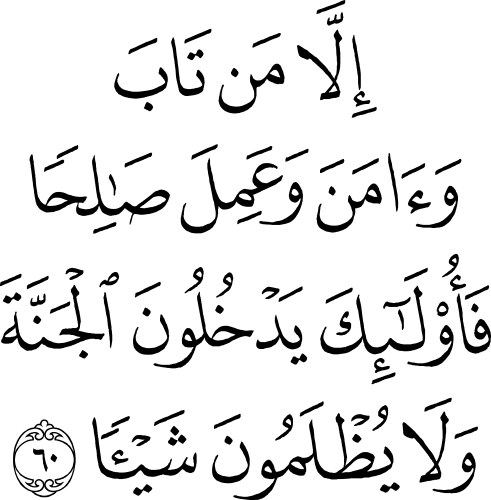 إِلَّا مَن تَابَ
وَءَامَنَ وَعَمِلَ صَٰلِحًا
فَأُوْلَٰٓئِكَ يَدْخُلُونَ ٱلْجَنَّةَ
وَلَا يُظْلَمُونَ شَيْـًٔا ٦٠